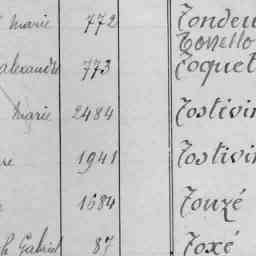 Marie 772 Tondeu
Tonello
Alexandre 773 Toquet
Marie 2484 Tostivin
re 1941 Tostivin
1684 Touzé
h Gabriel 87 Toxé